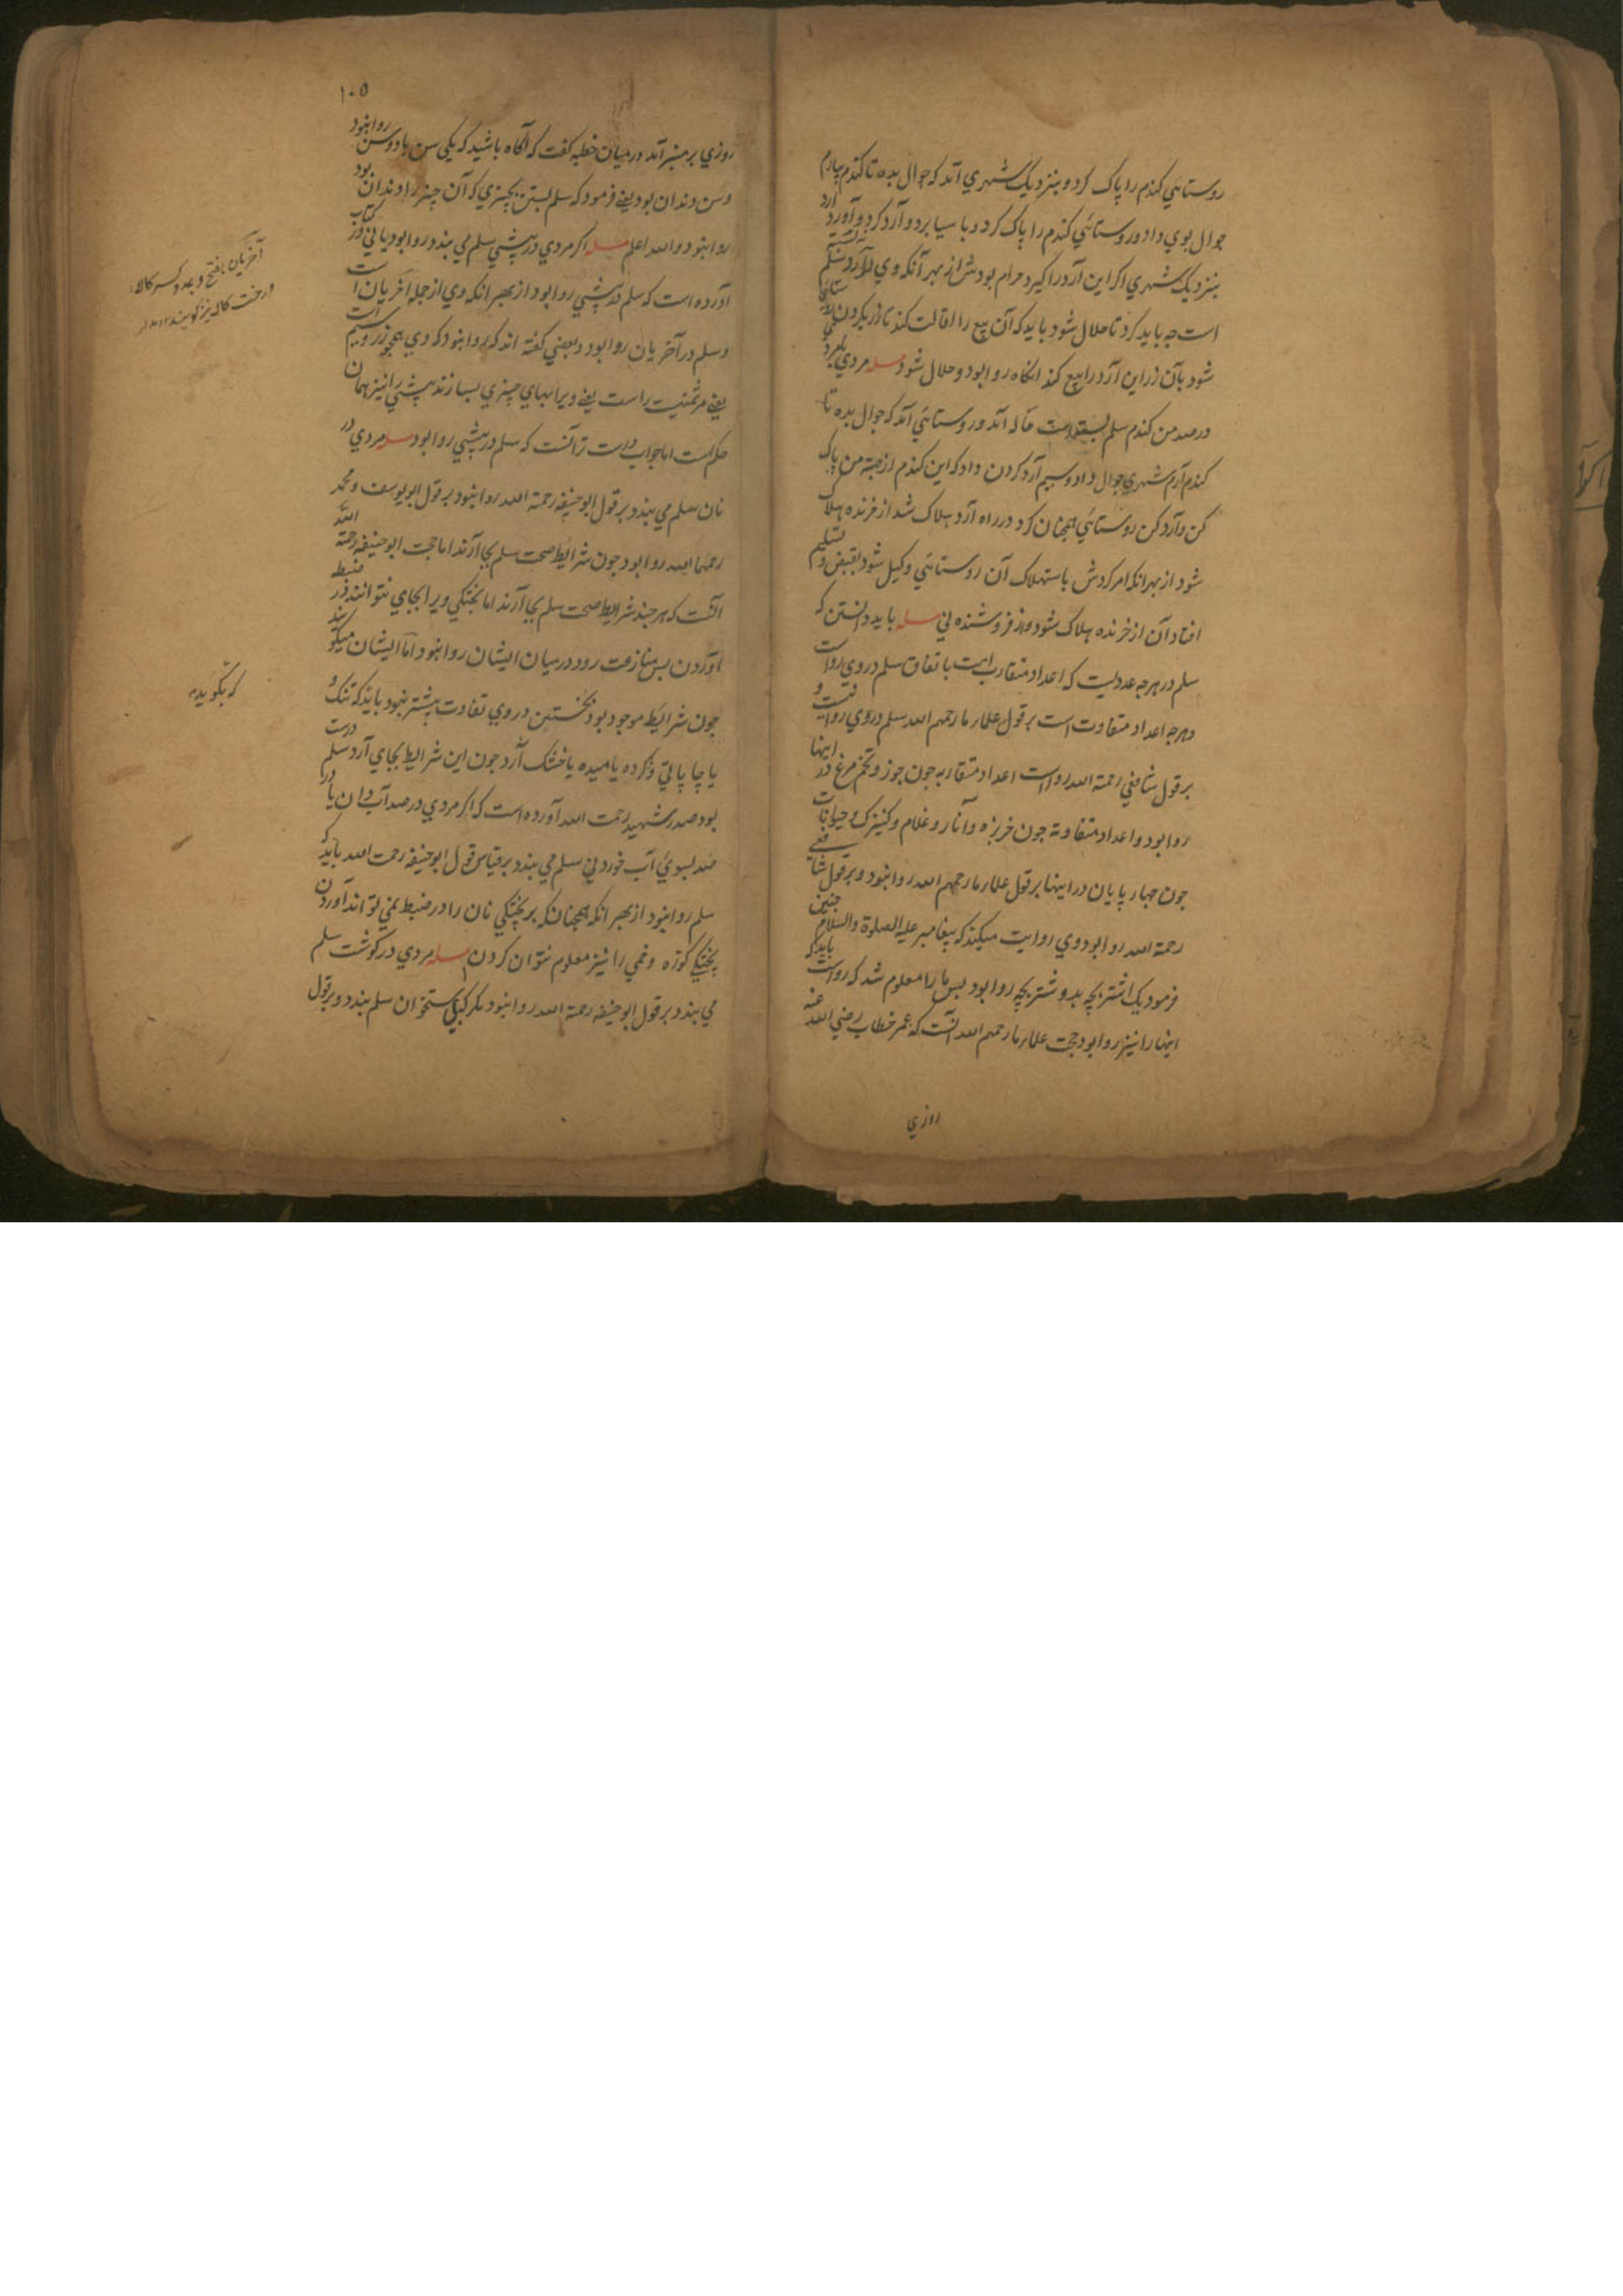 روستائي كندم را پاك كرد و بنزديك شهري آمد كه جوال بده تا كندم بيارم
جوال بوي داد و روستائي كندم را پاك كرد و بآسيا برد و آرد كرد و آورد
بنزديك شهري اكر اين آرد را كيرد حرام بودش از بهر آنكه وي آرد سلم
است چه بايد كرد تا حلال شود بايد كه آن بيع را اقالت كند تا زر بكردن
شود بآن زر اين آرد را بيع كند انكاه روا بود و حلال شود مسله مردي
در صد من كندم سلم بسته است خاله آمد و روستائي آمد كه جوال بده تا
كندم آرم شهري جوال داد و سيم آرد كردن داد كه اين كندم از جهته من پاك
كن و آرد كن روستائي همچنان كرد در راه آرد هلاك شد از خرنده هلاك
شود از بهر انكه امر كردش باستهلاك آن روستائي وكيل شود بقبض و تسليم
افتاد آن از خرنده هلاك شود و از فروشنده ني مسله بايد دانستن كه
سلم در هرچه عدديست كه اعداد متقارب است باتفاق سلم در وي رواست
و هرچه اعداد متفاوت است بر قول علمار ما رحمهم الله سلم در وي روا نيست و
بر قول شافعي رحمة الله رواست اعداد متقاربه چون جوز و تخم مرغ در اينها
روا بود و اعداد متفاوته چون خربزه و آنار و غلام و كنيزك و حيوانات
چون چهار پايان در اينها بر قول علمار ما رحمهم الله روا نبود و بر قول شافعي
رحمة الله روا بود وي روايت ميكند كه پيغامبر عليه الصلوة والسلام چنين
فرمود يك اشتر بچه بدو شتر بچه روا بود پس ما را معلوم شد كه رواست بايد كه
اينها را نيز روا بود حجت علمار ما رحمهم الله آنست كه عمر خطاب رضي الله عنه
روزي
١٠٥
روزي بر منبر آمد در ميان خطبه كفت كه آكاه باشيد كه يكي سن با دو سن روا نبود
و سن دندان بود يعني فرمود كه سلم بستن بچيزي كه آن چيز را دندان بود
روا نبود و الله اعلم مسله اكر مردي در پشتي سلم مي بندد روا بود يا ني در كتاب
آورده است كه سلم در پشتي روا بود از بهر انكه وي از جمله آخريان است
و سلم در آخريان روا بود و بعضي كفته اند كه روا نبود كه وي همچو زر و سيم است
يعني مر ثمنيت راست يعني ويرا بهاي چيزي بسازند پشتي را نيز همان
حكم است اما جواب درست تر آنست كه سلم در پشتي روا بود مسله مردي در
نان سلم مي بندد بر قول ابو حنيفه رحمة الله روا نبود بر قول ابو يوسف و محمد
رحمهما الله روا بود چون شرايط صحت سلم بجا آرند اما حجت ابو حنيفه رحمة الله
آنست كه هر چند شرايط صحت سلم بجا آرند اما پختكي ويرا بجاي نتوانند در ضبط
آوردن پس منازعت رود در ميان ايشان روا نبود اما ايشان ميكويند
چون شرايط موجود بود نخستين در وي تفاوت بيشتر نبود بايد كه تنك و
يا چاپاتي و كرده يا ميده يا خشك آرد چون اين شرايط بجاي آرد سلم درست
بود صدر شهيد رحمت الله آورده است كه اكر مردي در صد آبدان يا در
صد سبوي آب خوردني سلم مي بندد بر قياس قول ابو حنيفه رحمت الله بايد كه
سلم روا نبود از بهر انكه همچنانكه بر پختكي نان را در ضبط نمي تواند آوردن
پختكي كوزه و خمي را نيز معلوم نتوان كردن مسله مردي در كوشت سلم
مي بندد بر قول ابو حنيفه رحمة الله روا نبود مكر كه بي استخوان سلم بندد و بر قول
آخريان بفتح و بمد و كسر كالا
و رخت كاله نيز كويند
كه بكويد